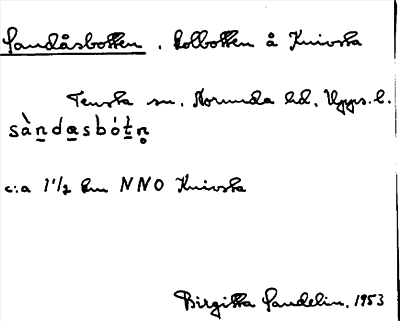 Sandåsbotten . Kolbotten å Knivsta
Tensta sn. Norunda hd. Upps. l.
sàn̠da̠sbót̠n̥
c:a 1 1/2 km NNO Knivsta
Birgitta Sandelin. 1953